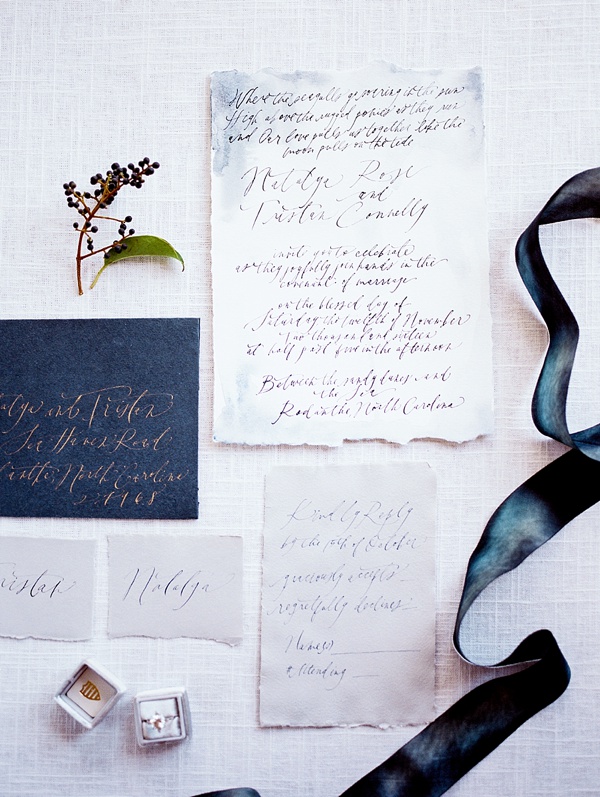 Where the seagulls go soaring in the sun
High above the rugged ponies as they run
and Our love pulls us together like the
moon pulls on the tide
Natalya Rose
and
Tristan Connelly
invite you to celebrate
as they joyfully join hands in the
covenant of marriage
on the blessed day of
Saturday the twelfth of November
Two thousand and sixteen
at half past five in the afternoon
Between the sandy dunes and
the Sea
Rodanthe, North Carolina
alya and Tristan
Sea Haven Road
anthe, North Carolina
Kindly Reply
by the of October
graciously accepts
regretfully declines
Name(s)
# Attending
ristan
Natalya